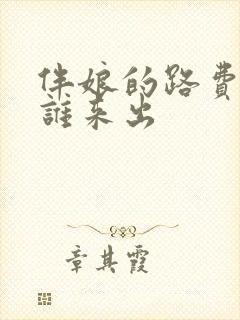 伴娘的路費
誰來出
章其霞